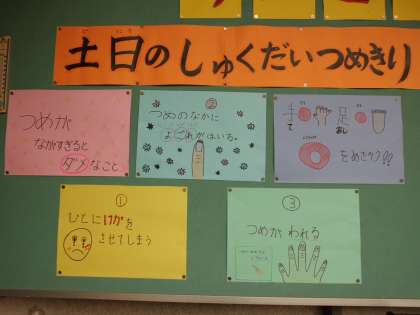 土日のしゅくだいつめきり
つめが
ながすぎると
ダメなこと
②
つめのなかに
よごれがはいる。
手 て 足 あし
をめざそう!!
①
ひとにけがを
させてしまう
③
つめがわれる